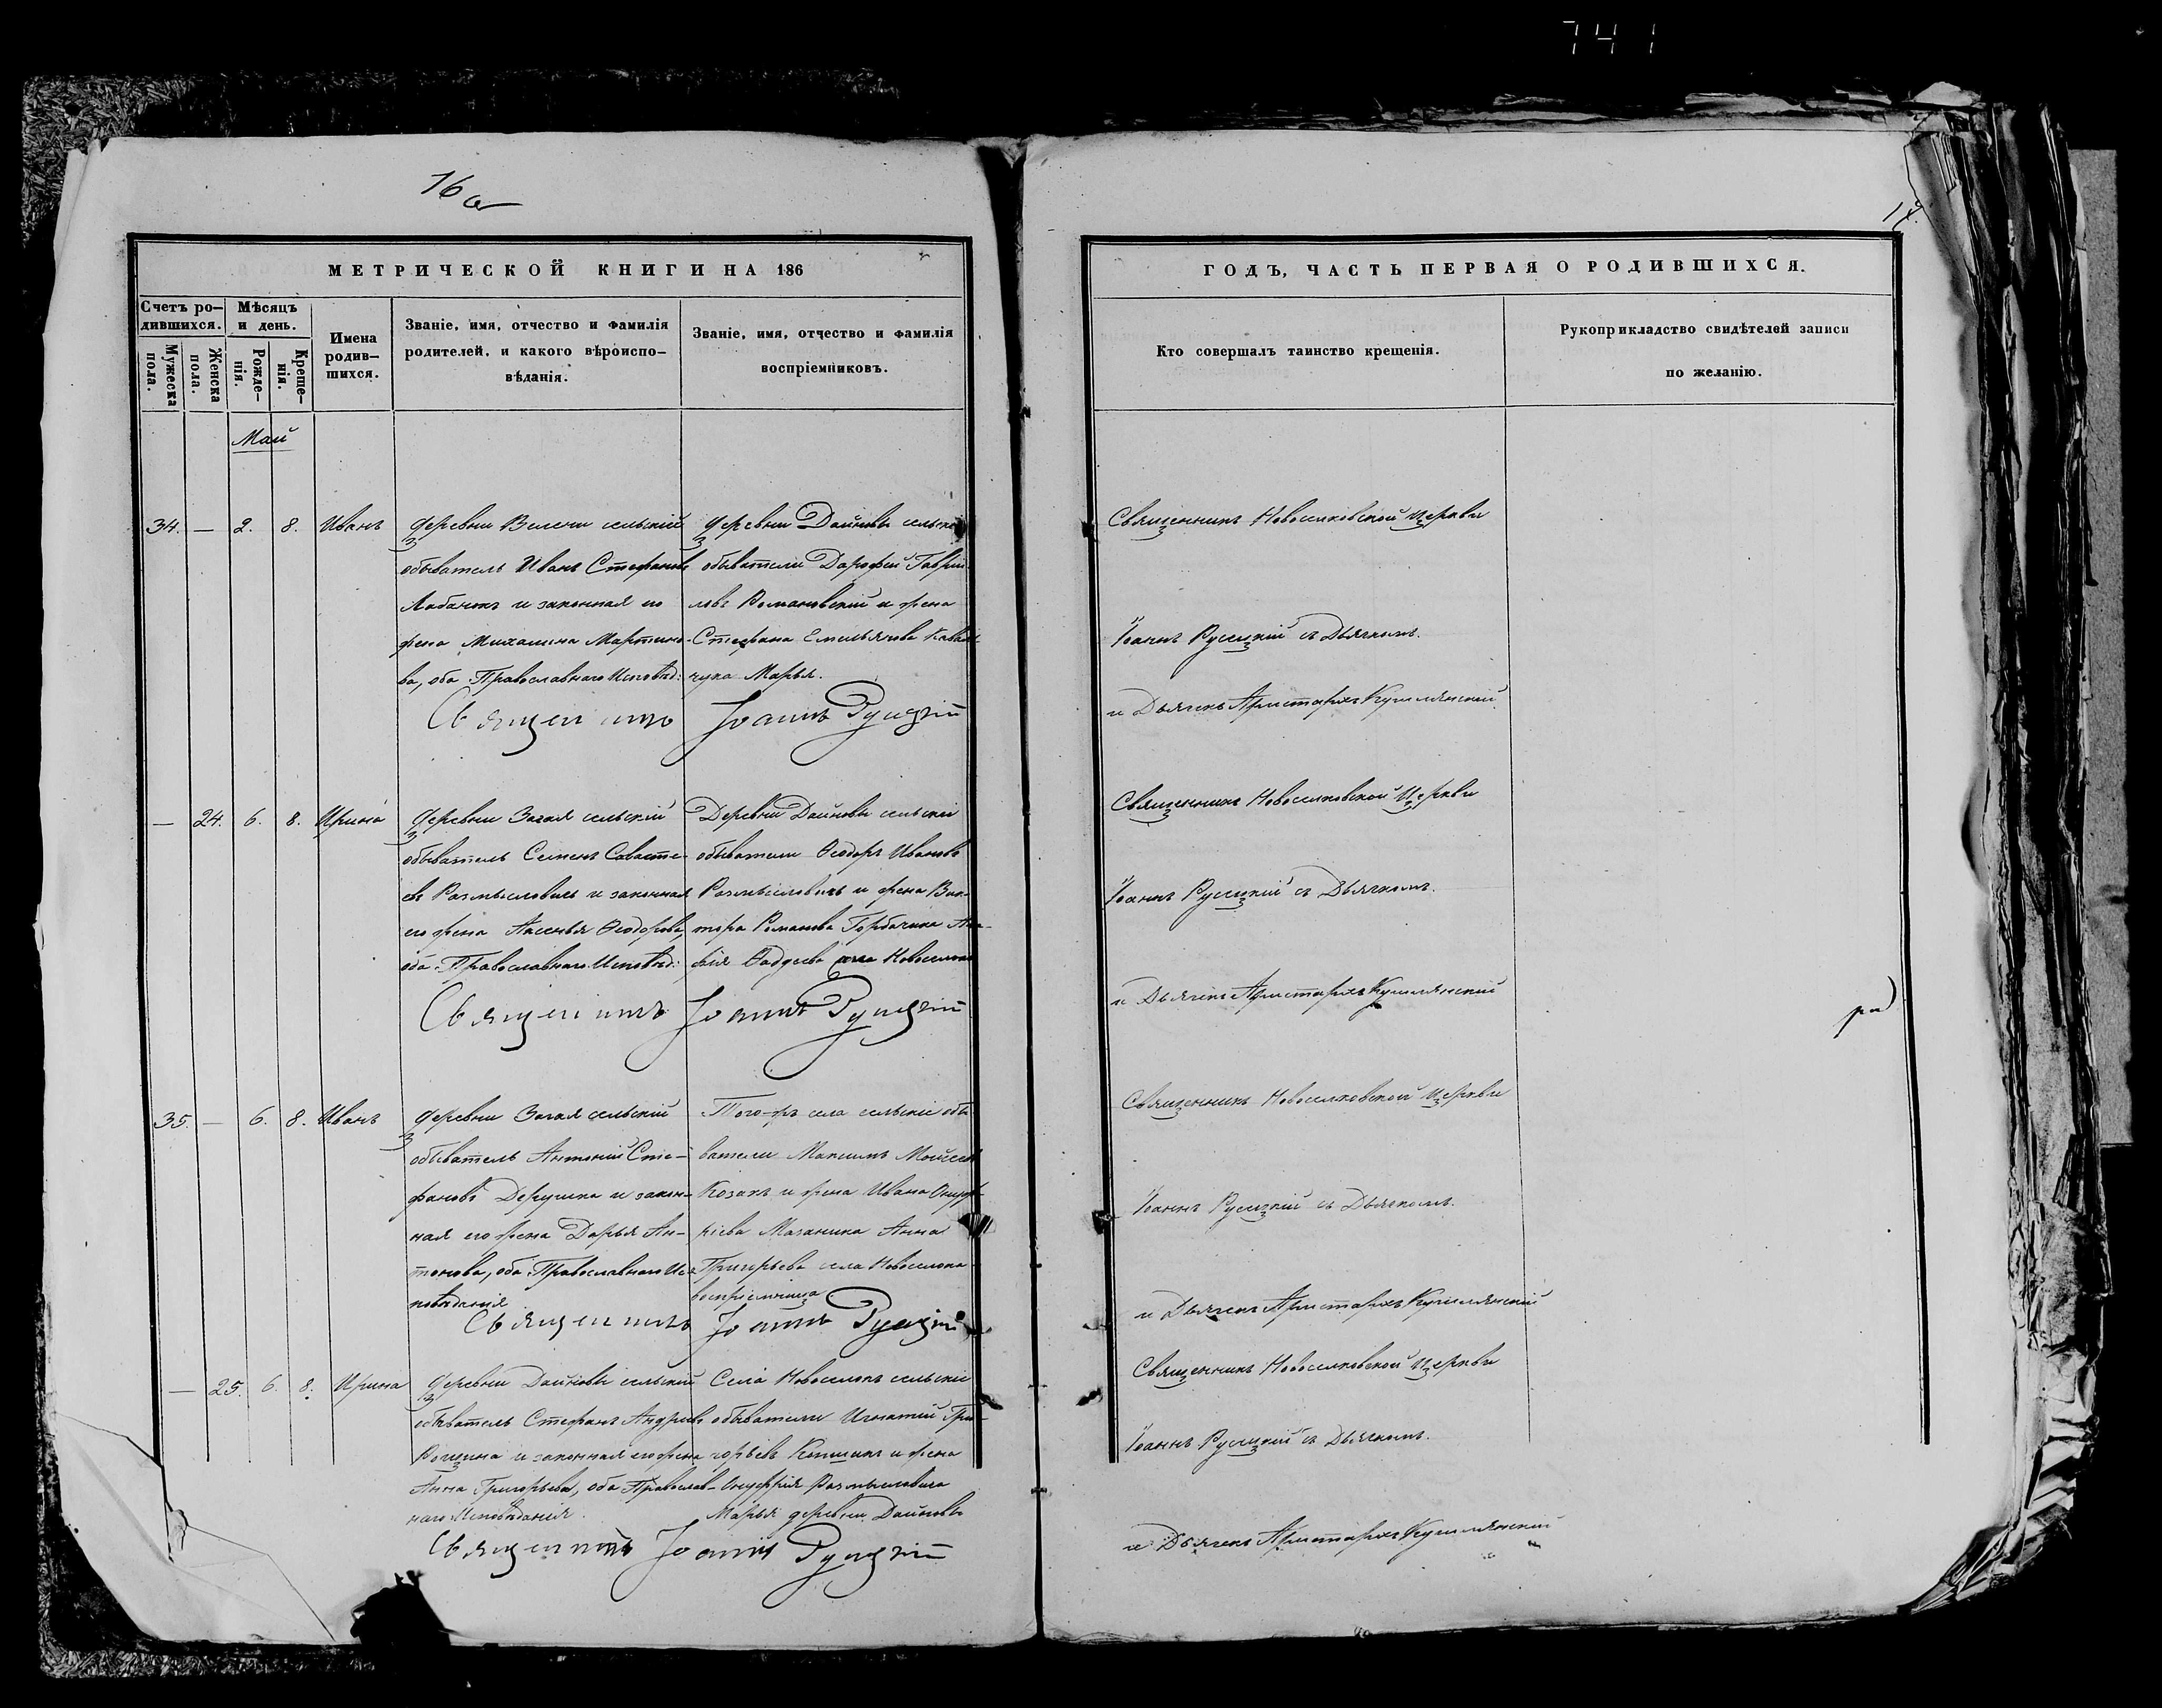 741
16 об
МЕТРИЧЕСКОЙ КНИГИ НА 186
Счетъ ро-
дившихся.
Мужеска
пола.
Женска
пола.
Мѣсяцъ
и день.
Рожде-
нія.
Креще-
нія.
Имена
родив-
шихся.
Званіе, имя, отчество и фамилія
родителей, и какого вѣроиспо-
вѣданія.
Званіе, имя, отчество и фамилія
воспріемниковъ.
Май
34. — 2. 8. Иванъ
деревни сельскій
обыватель Иванъ Стефановъ
и законная его
жена Михалина Мартино-
ва, оба Православнаго Исповѣд:
деревни Дайновы
обыватели Дорофей Гаврии-
ловъ Романовскій и жена
Стефана Емельянова
Марья.
Священникъ Іоаннъ Руцкій
— 24. 6. 8. Ирина
деревни Загая сельскій
обыватель Семенъ Савасте-
евъ Размысловичъ и законная
его жена Аксенья Ѳеодорова,
оба Православнаго Исповѣд:
Деревни Дайновы сельскіе
обыватели Ѳеодоръ Ивановъ
Размысловичъ и жена Вик-
тора Романова Горбачика
Фадѣева села Новоселокъ
Священникъ Іоаннъ Руцкій
35. — 6. 8. Иванъ
деревни Загая сельскій
обыватель Антоній Сте-
фановъ Дерушка и закон-
ная его жена Дарья Ан-
тонова, оба Православнаго Ис-
повѣданія
Того-жъ села сельскіе обы-
ватели Максимъ Моисеевъ
Козакъ и жена Ивана Онуф-
ріева Мазаника Анна
Григорьева села Новоселокъ
воспріемница
Священникъ Іоаннъ Руцкій
— 25. 6. 8. Ирина
деревни Дайновы сельскій
обыватель Стефанъ Андреевъ
и законная его жена
Анна Григорьева, оба Православ-
наго Исповѣданія.
Села Новоселокъ сельскіе
обыватели Игнатій Гри-
горьевъ и жена
Онуфрія Размысловича
Марья деревни Дайновы
Священникъ Іоаннъ Руцкій
ГОДЪ, ЧАСТЬ ПЕРВАЯ О РОДИВШИХСЯ.
Кто совершалъ таинство крещенія.
Рукоприкладство свидѣтелей записи
по желанію.
Священникъ Новоселковской Церкви
Іоаннъ Руцкій съ Дьячкомъ.
и Дьячекъ Аристархъ Кушлянскій
Священникъ Новоселковской Церкви
Іоаннъ Руцкій съ Дьячкомъ.
и Дьячекъ Аристархъ Кушлянскій
Священникъ Новоселковской Церкви
Іоаннъ Руцкій съ Дьячкомъ.
и Дьячекъ Аристархъ Кушлянскій
Священникъ Новоселковской Церкви
Іоаннъ Руцкій съ Дьячкомъ.
и Дьячекъ Аристархъ Кушлянскій